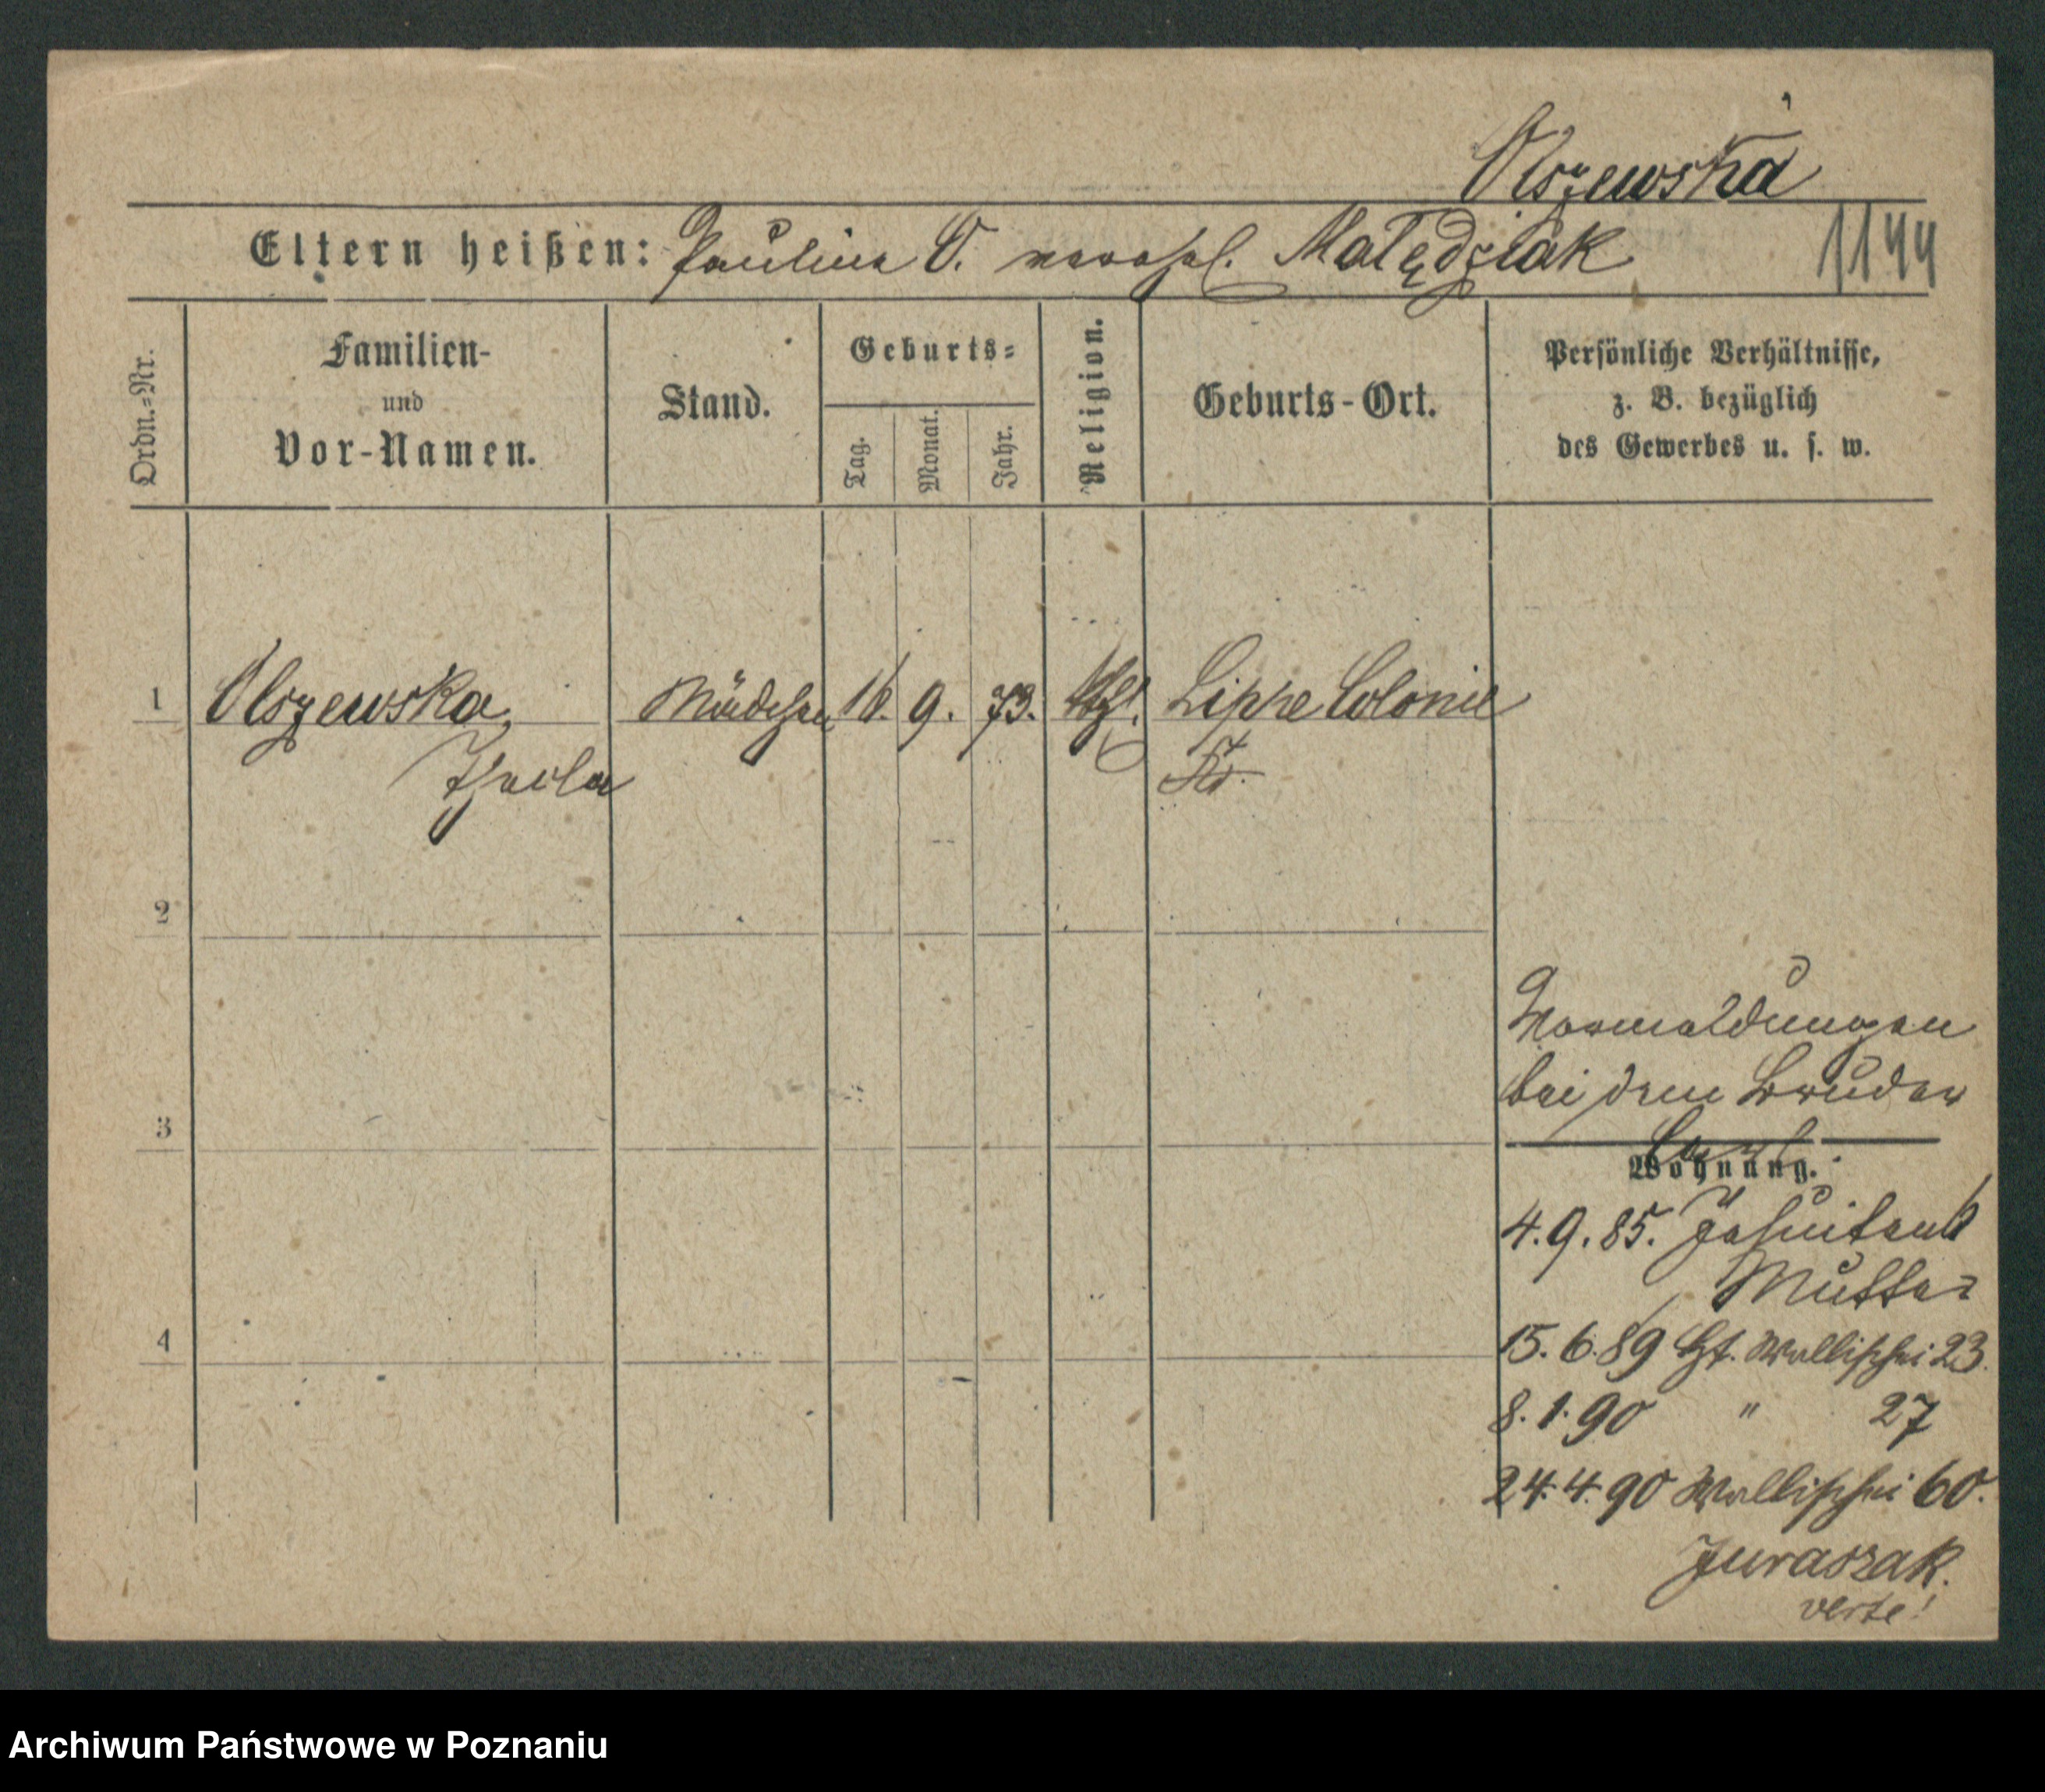 Olszewska
Eltern heißen: Paulina O. verehel. Małędziak
1144
Ordn.=Nr.
Familien-
und
Vor-Namen.
Stand.
Geburts=
Tag.
Monat.
Jahr.
Religion.
Geburts-Ort.
Persönliche Verhältnisse,
z. B. bezüglich
des Gewerbes u. s. w.
1 Olszewska, Mädchen 16. 9. 73. kathl. Lippe Colonie
Thecla
2
3
4
Vormeldungen
bei dem Bruder
Carl.
Wohnung.
4.9.85. Jesuitenst
Mutter
15.6.89 Wallischei 23.
8.1.90 " 27
24.4.90 Wallischei 60.
Juraszak.
verte!
Archiwum Państwowe w Poznaniu